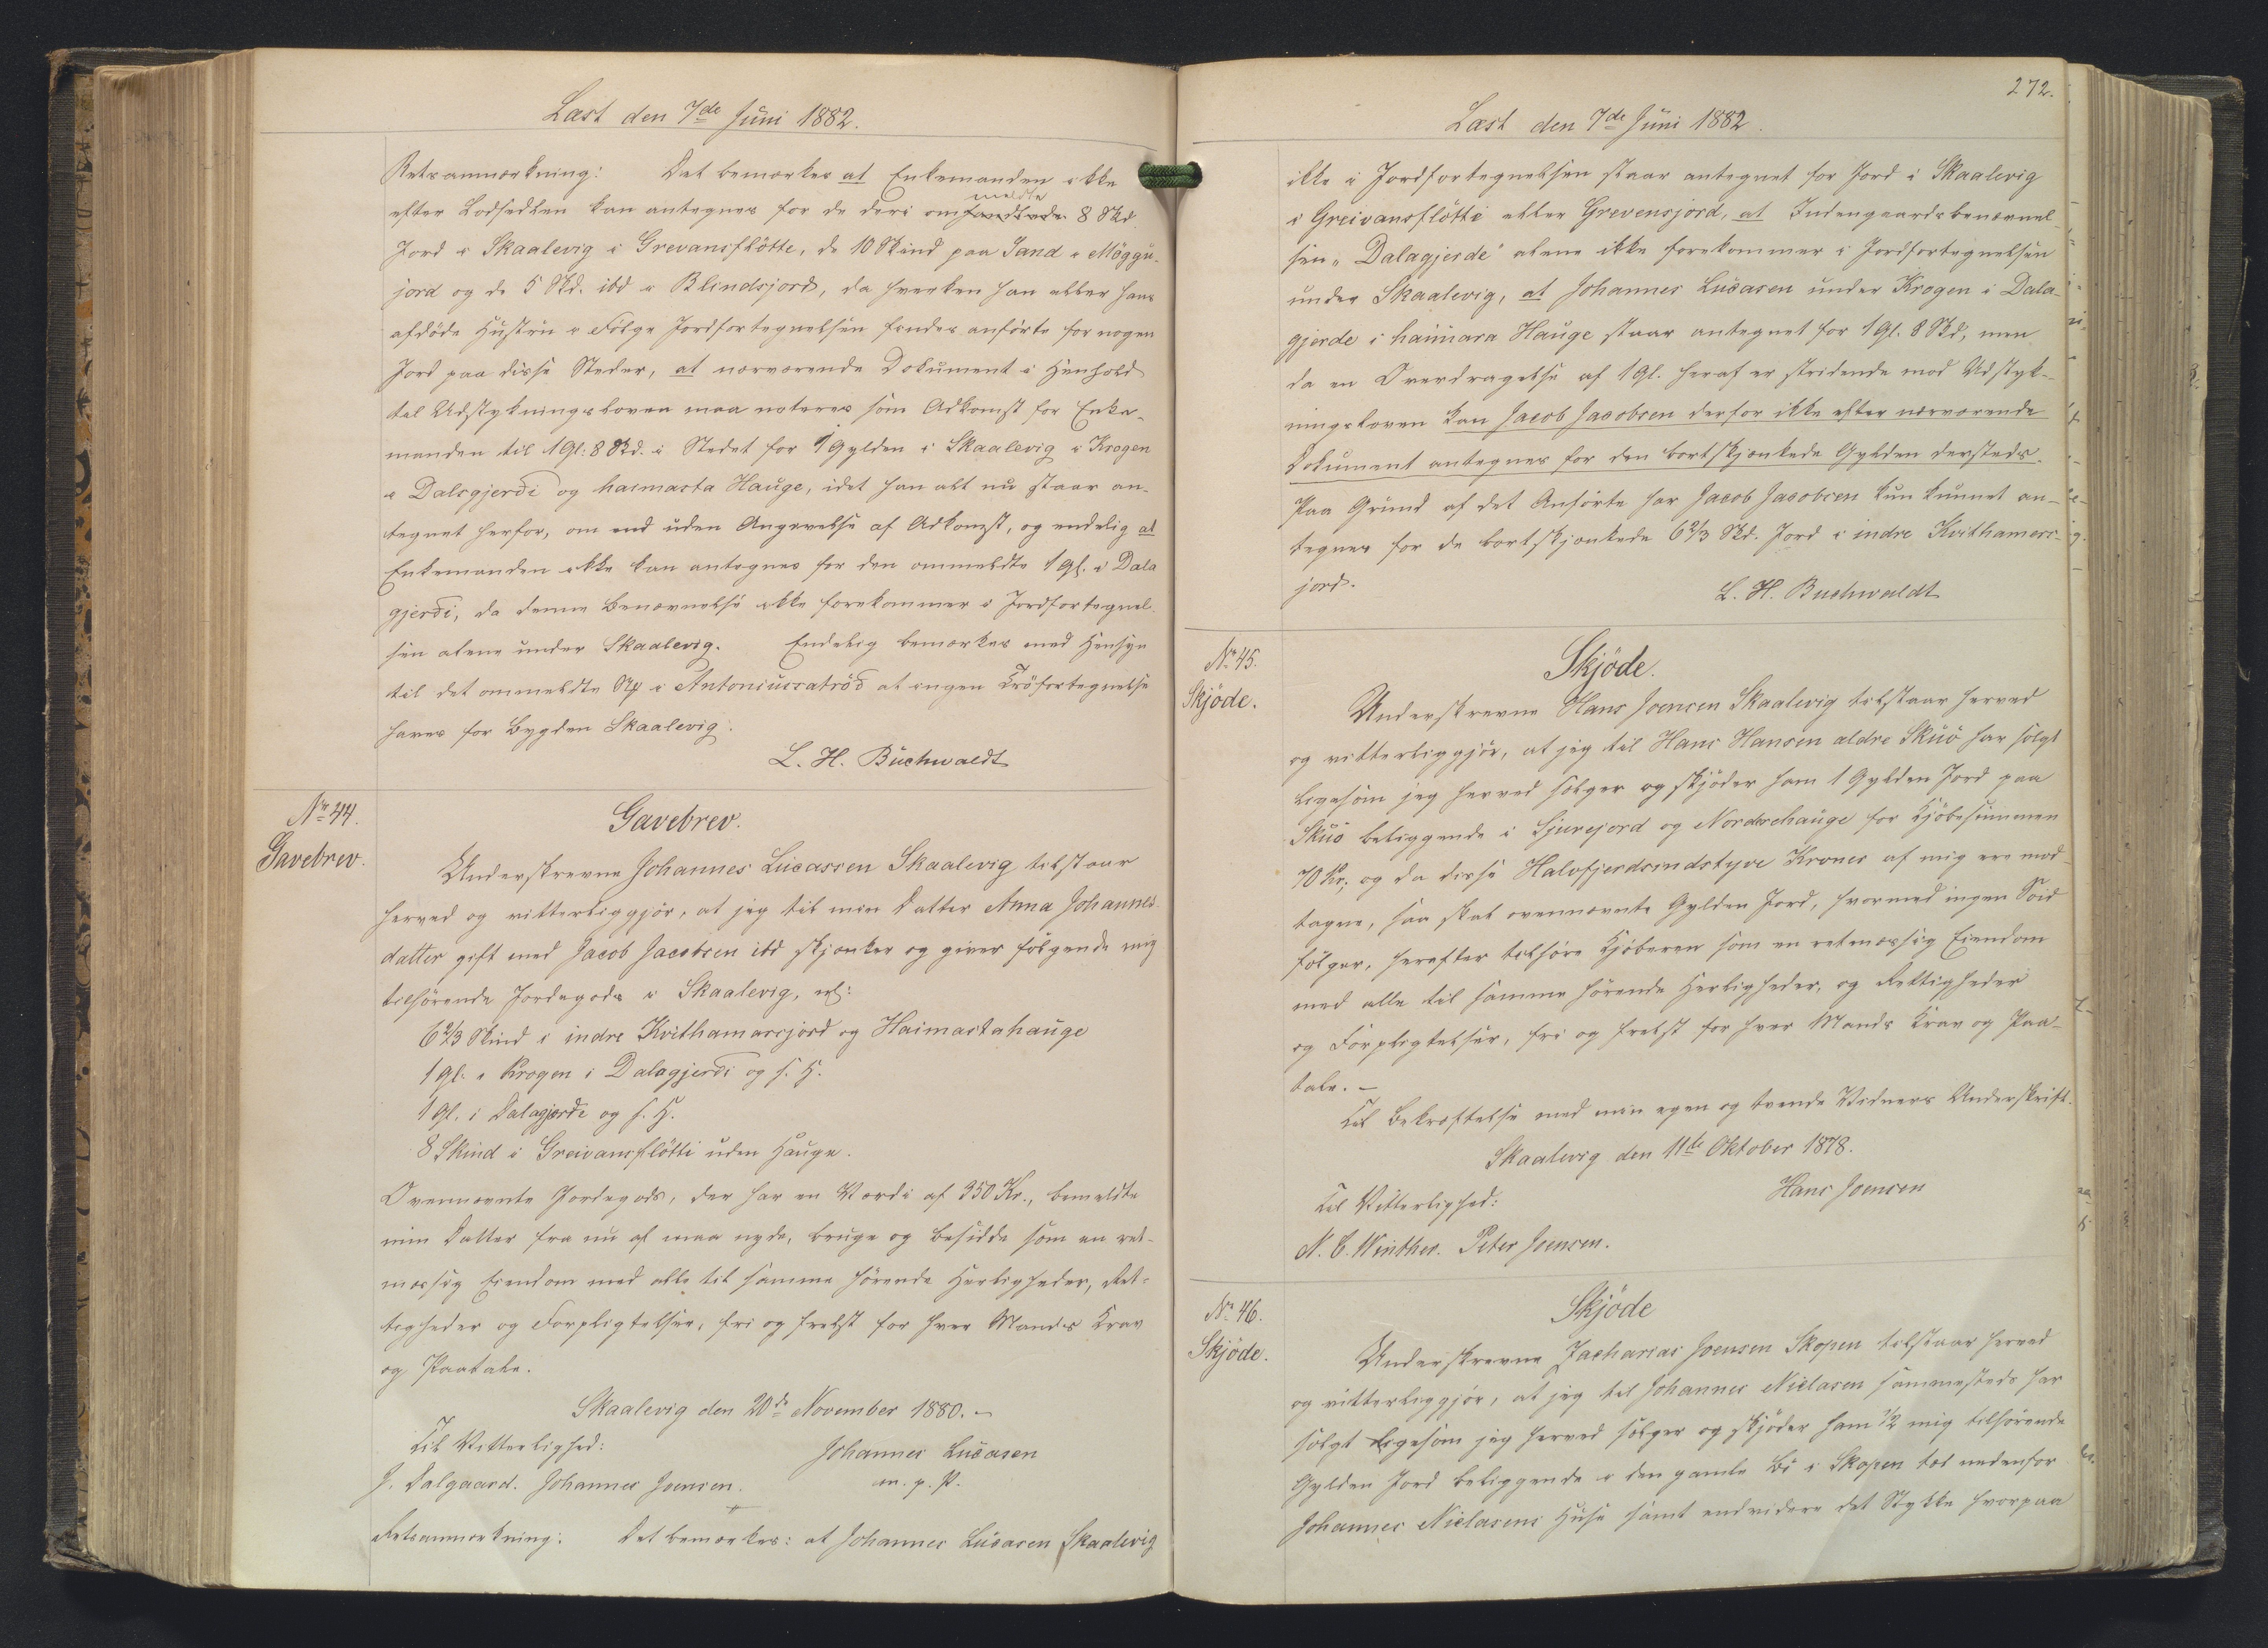 Læst den 7de Juni 1882.
Retsanmærkning: Det bemærkes at Enkemanden ikke
efter Lodsedlen kan antegnes for de deri omhandlede meldte 8 Skd.
Jord i Skaalevig i Grevansflötte, de 10 Skind paa Sand i Möggu-
jord og de 5 Skd. ibd i Blindsjord, da hverken han eller hans
afdöde Hustru i Fölge Jordfortegnelsen findes anförte for nogen
Jord paa disse Steder, at nærværende Dokument i Henhold
til Udstykningsloven maa noteres som Adkomst for Enke-
manden til 1 Gl. 8 Skd. i Stedet for 1 Gylden i Skaalevig i Krogen
i Dalsgjerdi og haimasta Hauge, idet han alt nu staar an-
tegnet herfor, om end uden Angivelse af Adkomst, og endelig at
Enkemanden ikke kan antegnes for den ommeldte 1 Gl. i Dala
gjerdi, da denne Benævnelse ikke forekommer i Jordfortegnel-
sen alene under Skaalevig. Endelig bemærkes med Hensyn
til det ommeldte i Antoniusatröd at ingen Tröfortegnelse
haves for Bygden Skaalevig.
L. H. Buchwaldt
Nr. 44.
Gavebrev.
Gavebrev.
Underskrevne Johannes Lucassen Skaalevig tilstaar
herved og vitterliggjör, at jeg til min Datter Anna Johannes-
datter gift med Jacob Jacobsen ibd skjænker og giver fölgende mig
tilhörende Jordegods i Skaalevig, nl:
6 2/3 Skind i indre Kvithamarsjord og Haimastahauge
1 Gl. i Krogen i Dalagjerdi og s. H.
1 Gl. i Dalagjerde og s. H.
8 Skind i Greivansflötti uden Hauge.
Ovennævnte Jordegods, der har en Værdi af 350 Kr., bemeldte
min Datter fra nu af maa nyde, bruge og besidde som en ret-
mæssig Eiendom med alle til samme hörende Herligheder, Ret-
tigheder og Forpligtelser, fri og frelst for hver Mands Krav
og Paatale.
Skaalevig den 20de November 1880. -
Til Vitterlighed: Johannes Lucasen
J. Dalgaard. Johannes Joensen. m. p. P.
Retsanmærkning: Det bemærkes: at Johannes Lucasen Skaalevig
272.
Læst den 7de Juni 1882.
ikke i Jordfortegnelsen staar antegnet for Jord i Skaalevig
i Greivansflötti eller Grevensjord, at Indengaardsbenævnel-
sen „Dalagjerde" alene ikke forekommer i Jordfortegnelsen
under Skaalevig, at Johannes Lucasen under Krogen i Dala-
gjerde i haimara Hauge staar antegnet for 1 Gl. 8 Skd, men
da en Overdragelse af 1 Gl. heraf er stridende mod Udstyk-
ningsloven kan Jacob Jacobsen derfor ikke efter nærværende
Dokument antegnes for den bortskjænkede Gylden dersteds.
Paa Grund af det Anförte har Jacob Jacobsen kun kunnet an-
tegnes for de bortskjænkede 6 2/3 Skd. Jord i indre Kvithamers-
jord.
L. H. Buchwaldt
Nr. 45.
Skjöde.
Skjöde.
Underskrevne Hans Joensen Skaalevig tilstaar herved
og vitterliggjör, at jeg til Hans Hansen ældre Skuö har solgt
ligesom jeg herved sælger og skjöder ham 1 Gylden Jord paa
Skuö beliggende i Ljurejord og Nordrehauge for Kjöbesummen
70 Kr., og da disse Halvfjerdsindstyve Kroner af mig ere mod-
tagne, saa skal ovennævnte Gylden Jord, hvormed ingen Söid
fölger, herefter tilhöre Kjöberen som en retmæssig Eiendom
med alle til samme hörende Herligheder, og Rettigheder
og Forpligtelser, fri og frelst for hver Mands Krav og Paa-
tale. -
Til Bekræftelse med min egen og tvende Vidners Underskrift.
Skaalevig den 11te Oktober 1878.
Til Vitterlighed: Hans Joensen
N. C. Winther. Peter Joensen.
Nr. 46.
Skjöde.
Skjöde
Underskrevne Zacharias Joensen Skopen tilstaar herved
og vitterliggjör, at jeg til Johannes Niclasen sammesteds har
solgt ligesom jeg herved sælger og skjöder ham 1/2 mig tilhörende
Gylden Jord beliggende i den gamle Bö i Skopen tæt nedenfor
Johannes Niclasens Huse samt endvidere det Stykke hvorpaa